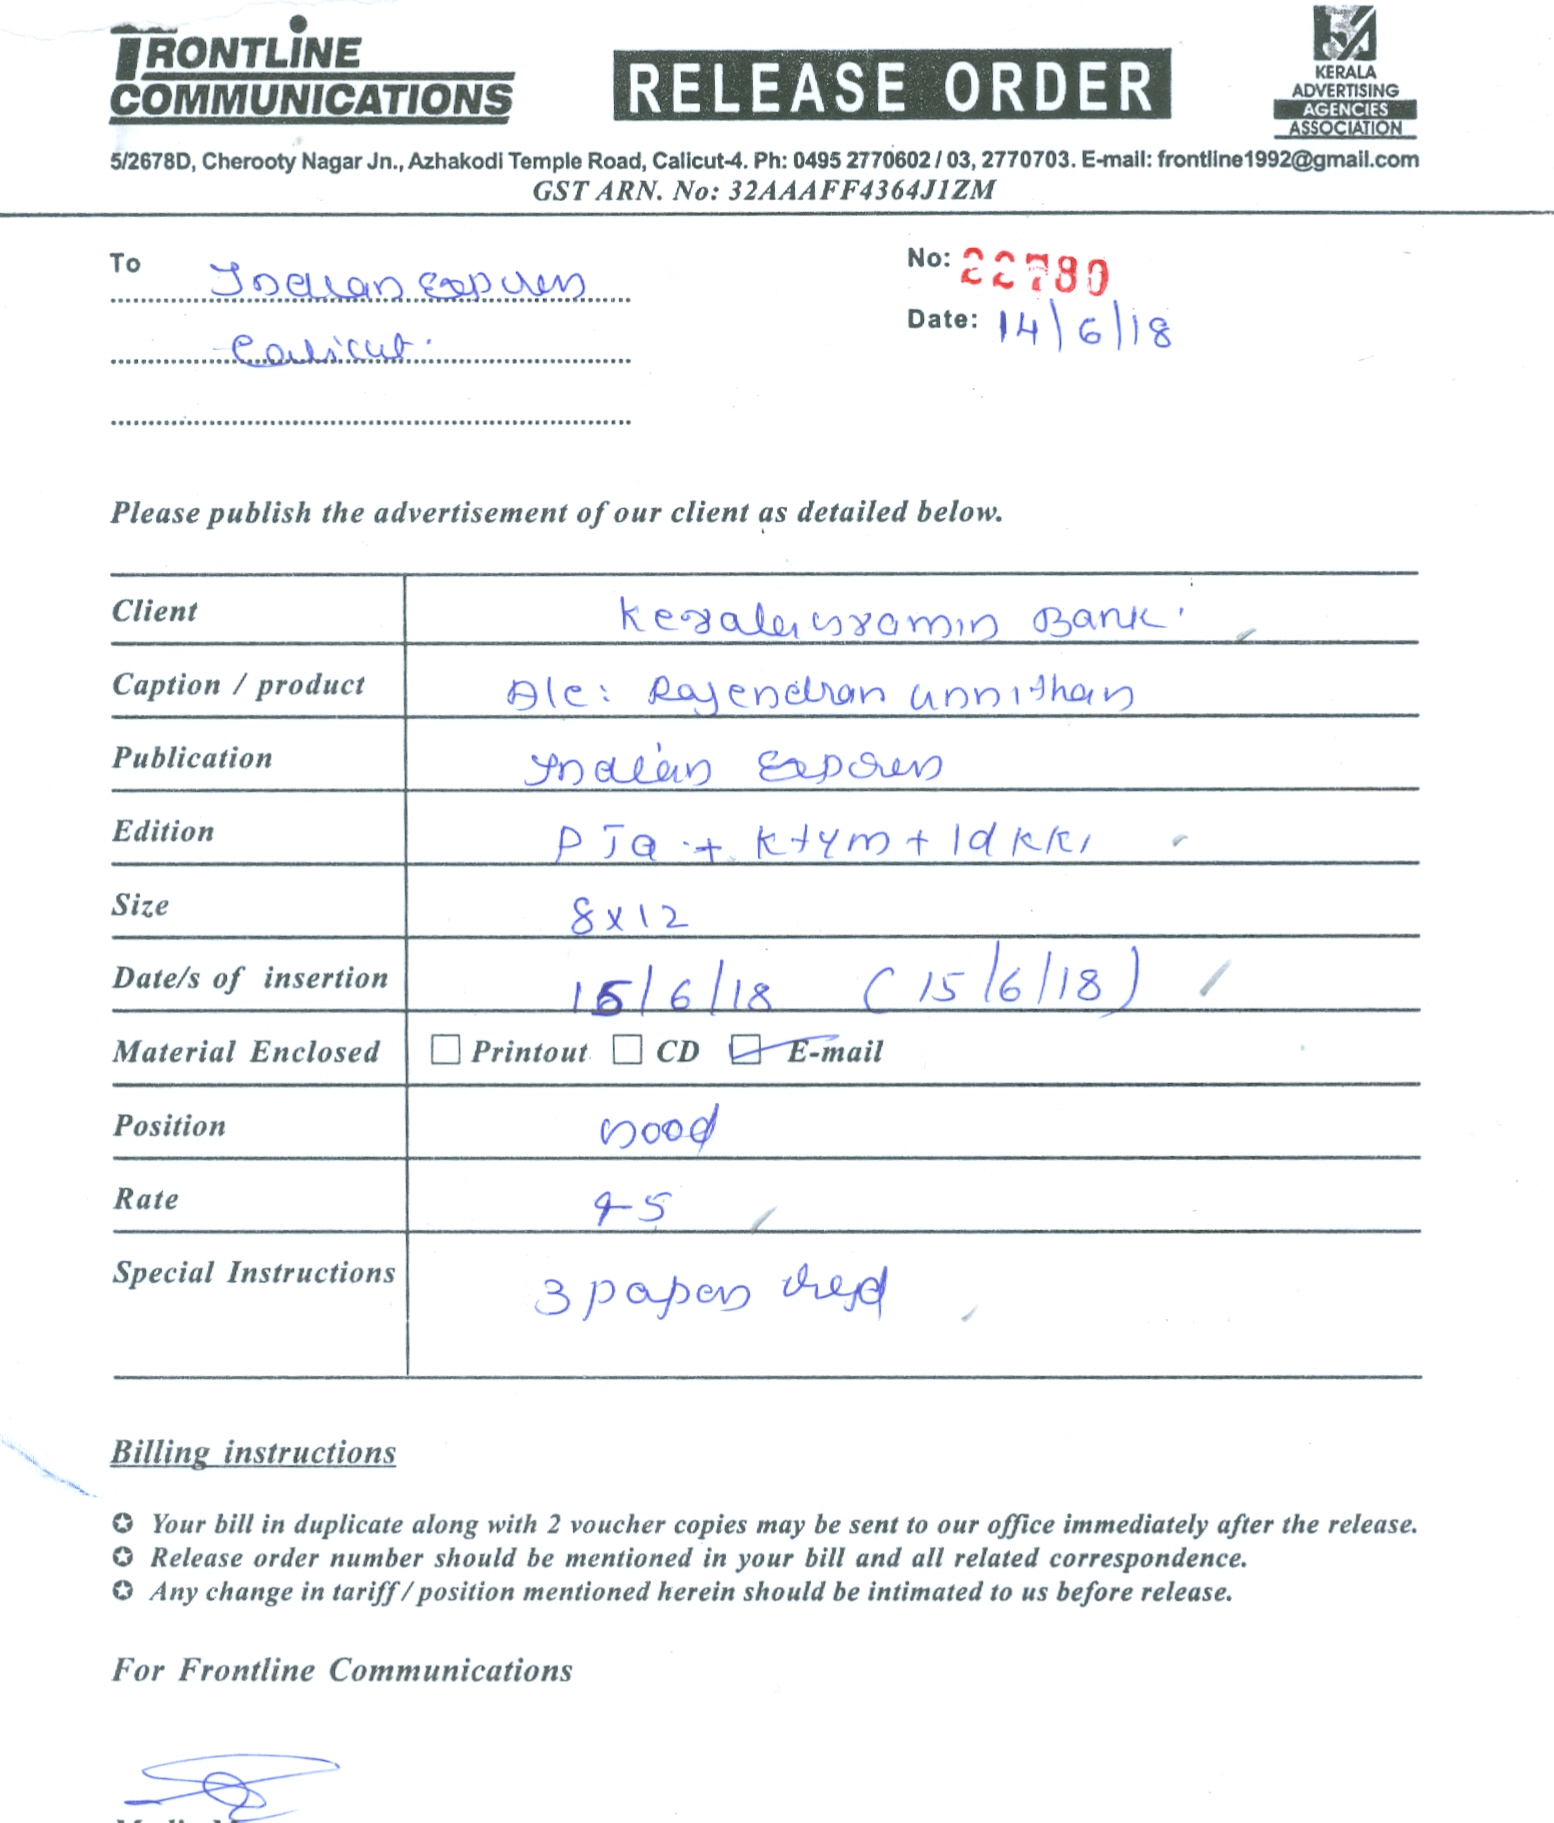 FRONTLINE
COMMUNICATIONS
RELEASE ORDER
KERALA
ADVERTISING
AGENCIES
ASSOCIATION
5/2678D, Cherooty Nagar Jn., Azhakodi Temple Road, Calicut-4. Ph: 0495 2770602 / 03, 2770703. E-mail: frontline1992@gmail.com
GST ARN. No: 32AAAFF4364J1ZM
To Indian Express
Calicut.
No: 22780
Date: 14/6/18
Please publish the advertisement of our client as detailed below.
Client Kerala Gramin Bank
Caption / product A/c: Rajendran unnithan
Publication Indian Express
Edition PTA + Ktym + Idkki
Size 8x12
Date/s of insertion 15/6/18 (15/6/18)
Material Enclosed Printout CD E-mail
Position Good
Rate 95
Special Instructions 3 papers
Billing instructions
Your bill in duplicate along with 2 voucher copies may be sent to our office immediately after the release.
Release order number should be mentioned in your bill and all related correspondence.
Any change in tariff / position mentioned herein should be intimated to us before release.
For Frontline Communications